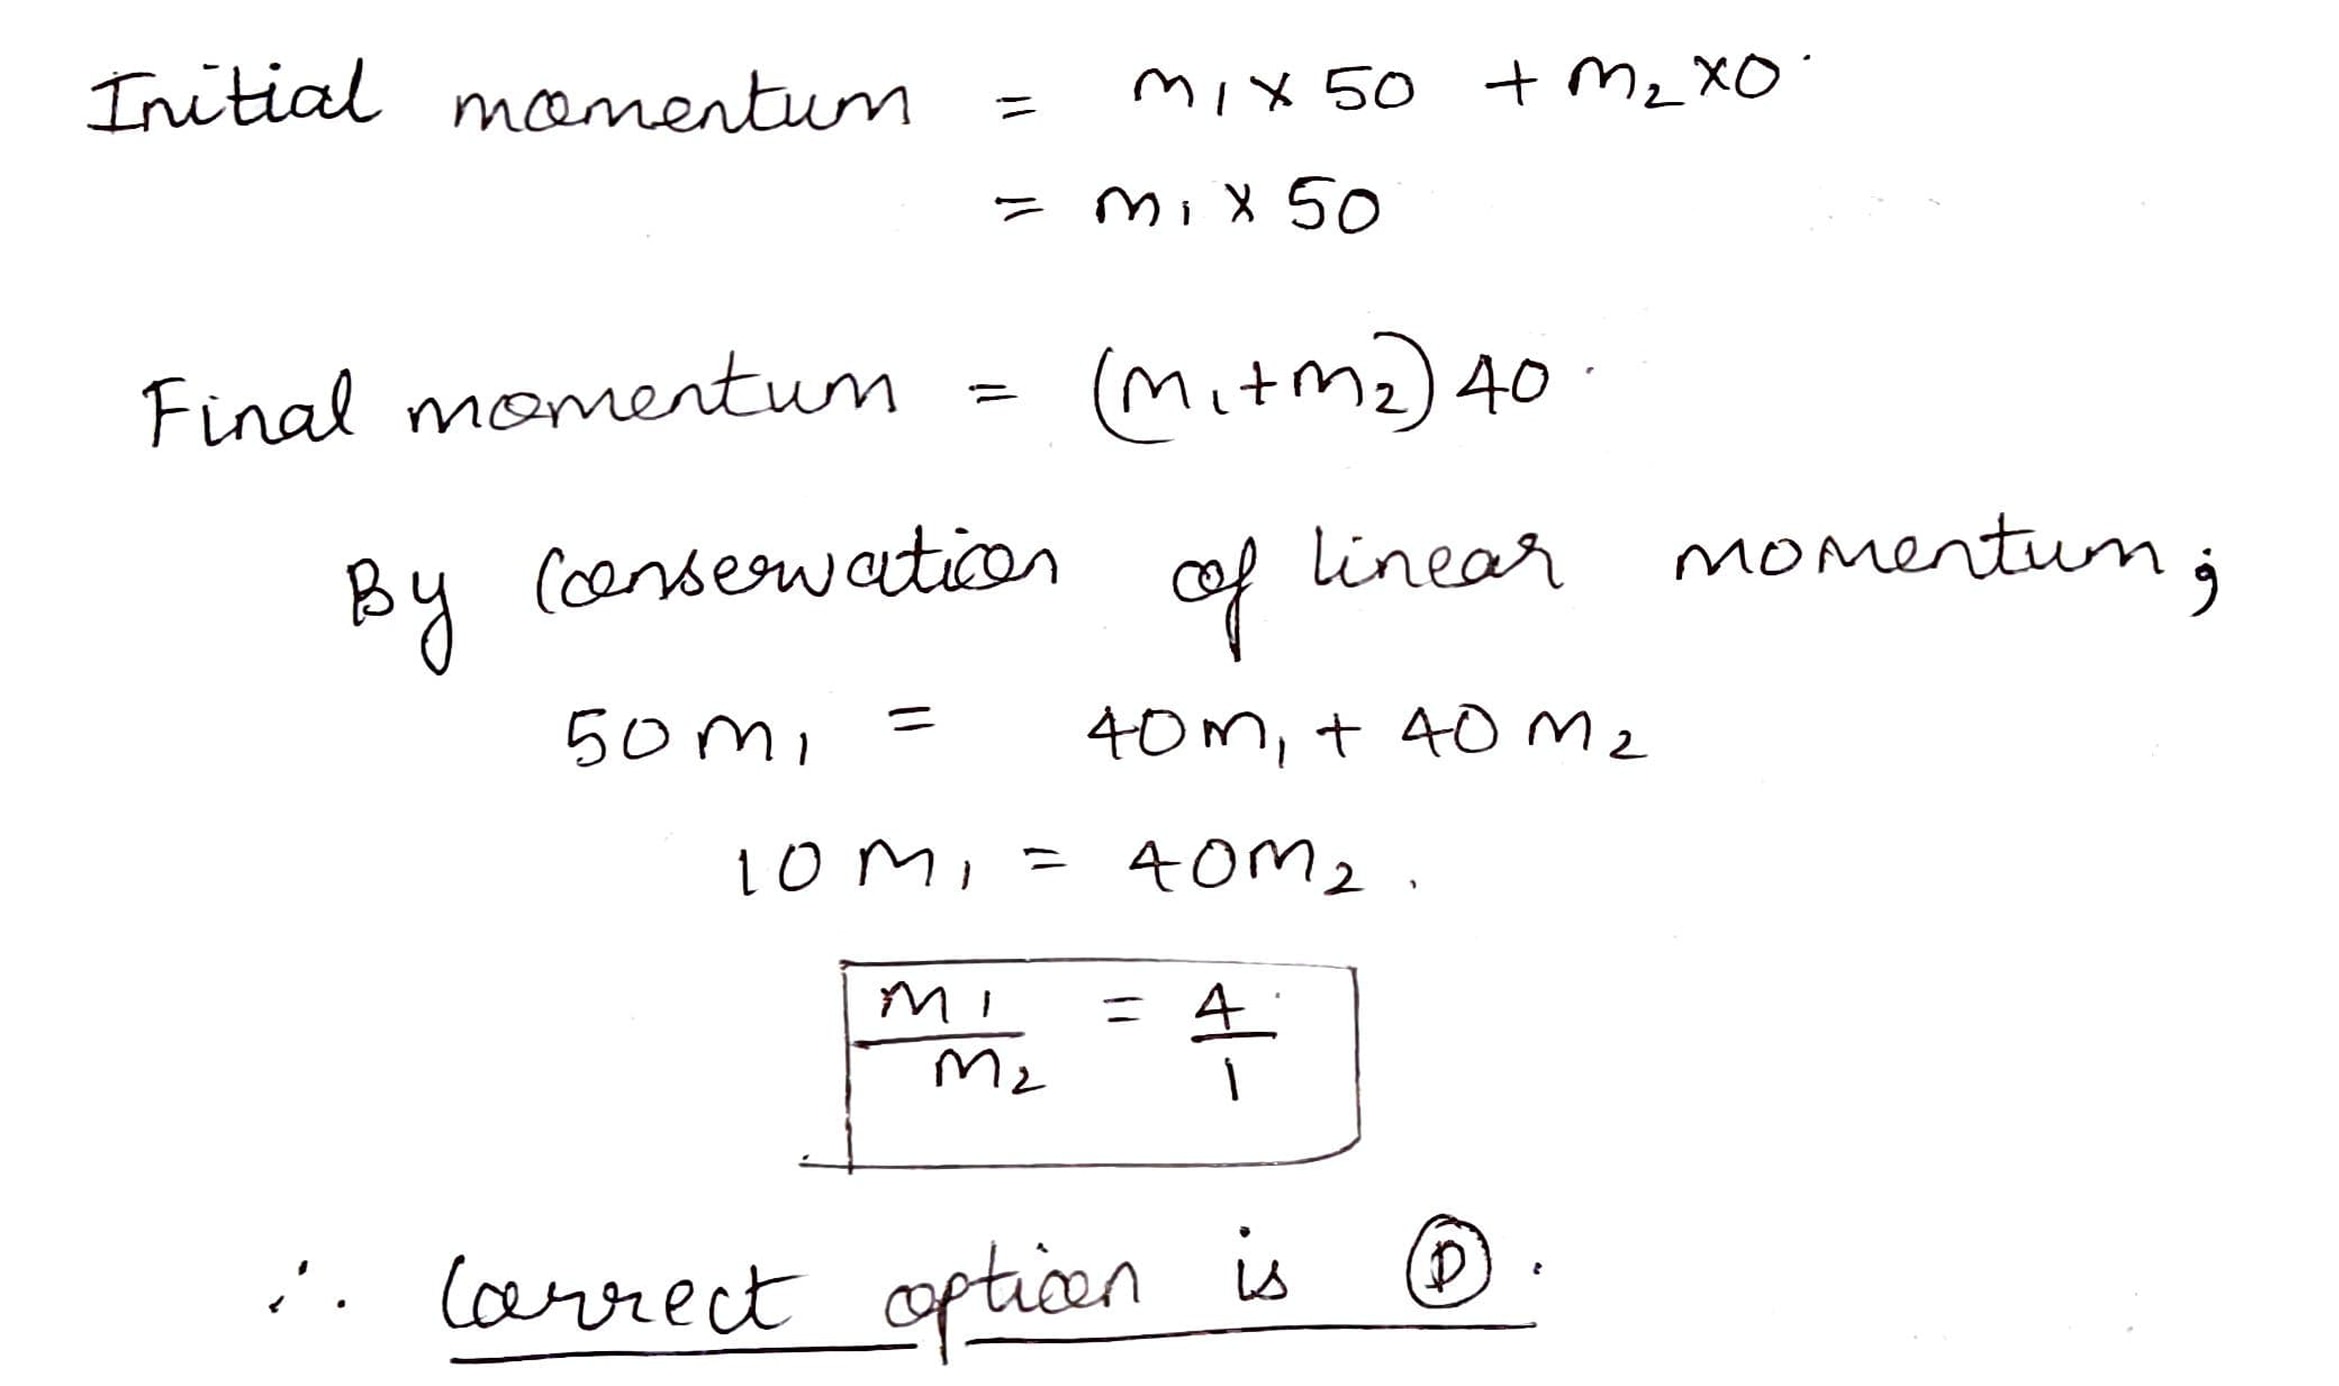 Initial momentum = m1 x 50 + m2 x 0.
= m1 x 50
Final momentum = (m1+m2) 40.
By Conservation of linear momentum;
50 m1 = 40m1 + 40 m2
10 m1 = 40m2.
m1/m2 = 4/1
∴ Correct option is Ⓓ.